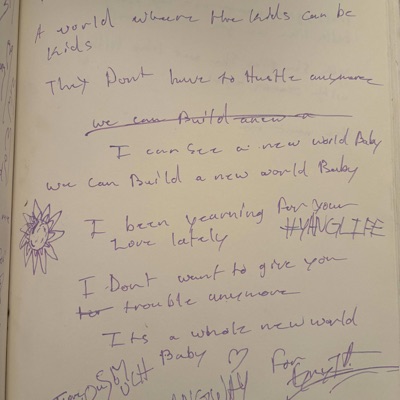 A world where the kids can be
kids
They Dont have to Hustle anymore
we can Build anew a
I can see a new world Baby
we can Build a new world Baby
I been yearning for your
Love lately
#YANGLIFE
I Dont want to give you
trouble anymore
Its a whole new world
Baby
For